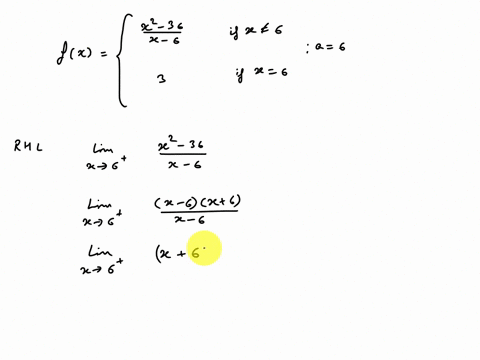 f(x) = { x² - 36 / x - 6 if x ≠ 6
3 if x = 6 ; a = 6
RHL Lim x→6⁺ x² - 36 / x - 6
Lim x→6⁺ (x-6)(x+6) / x - 6
Lim x→6⁺ (x + 6